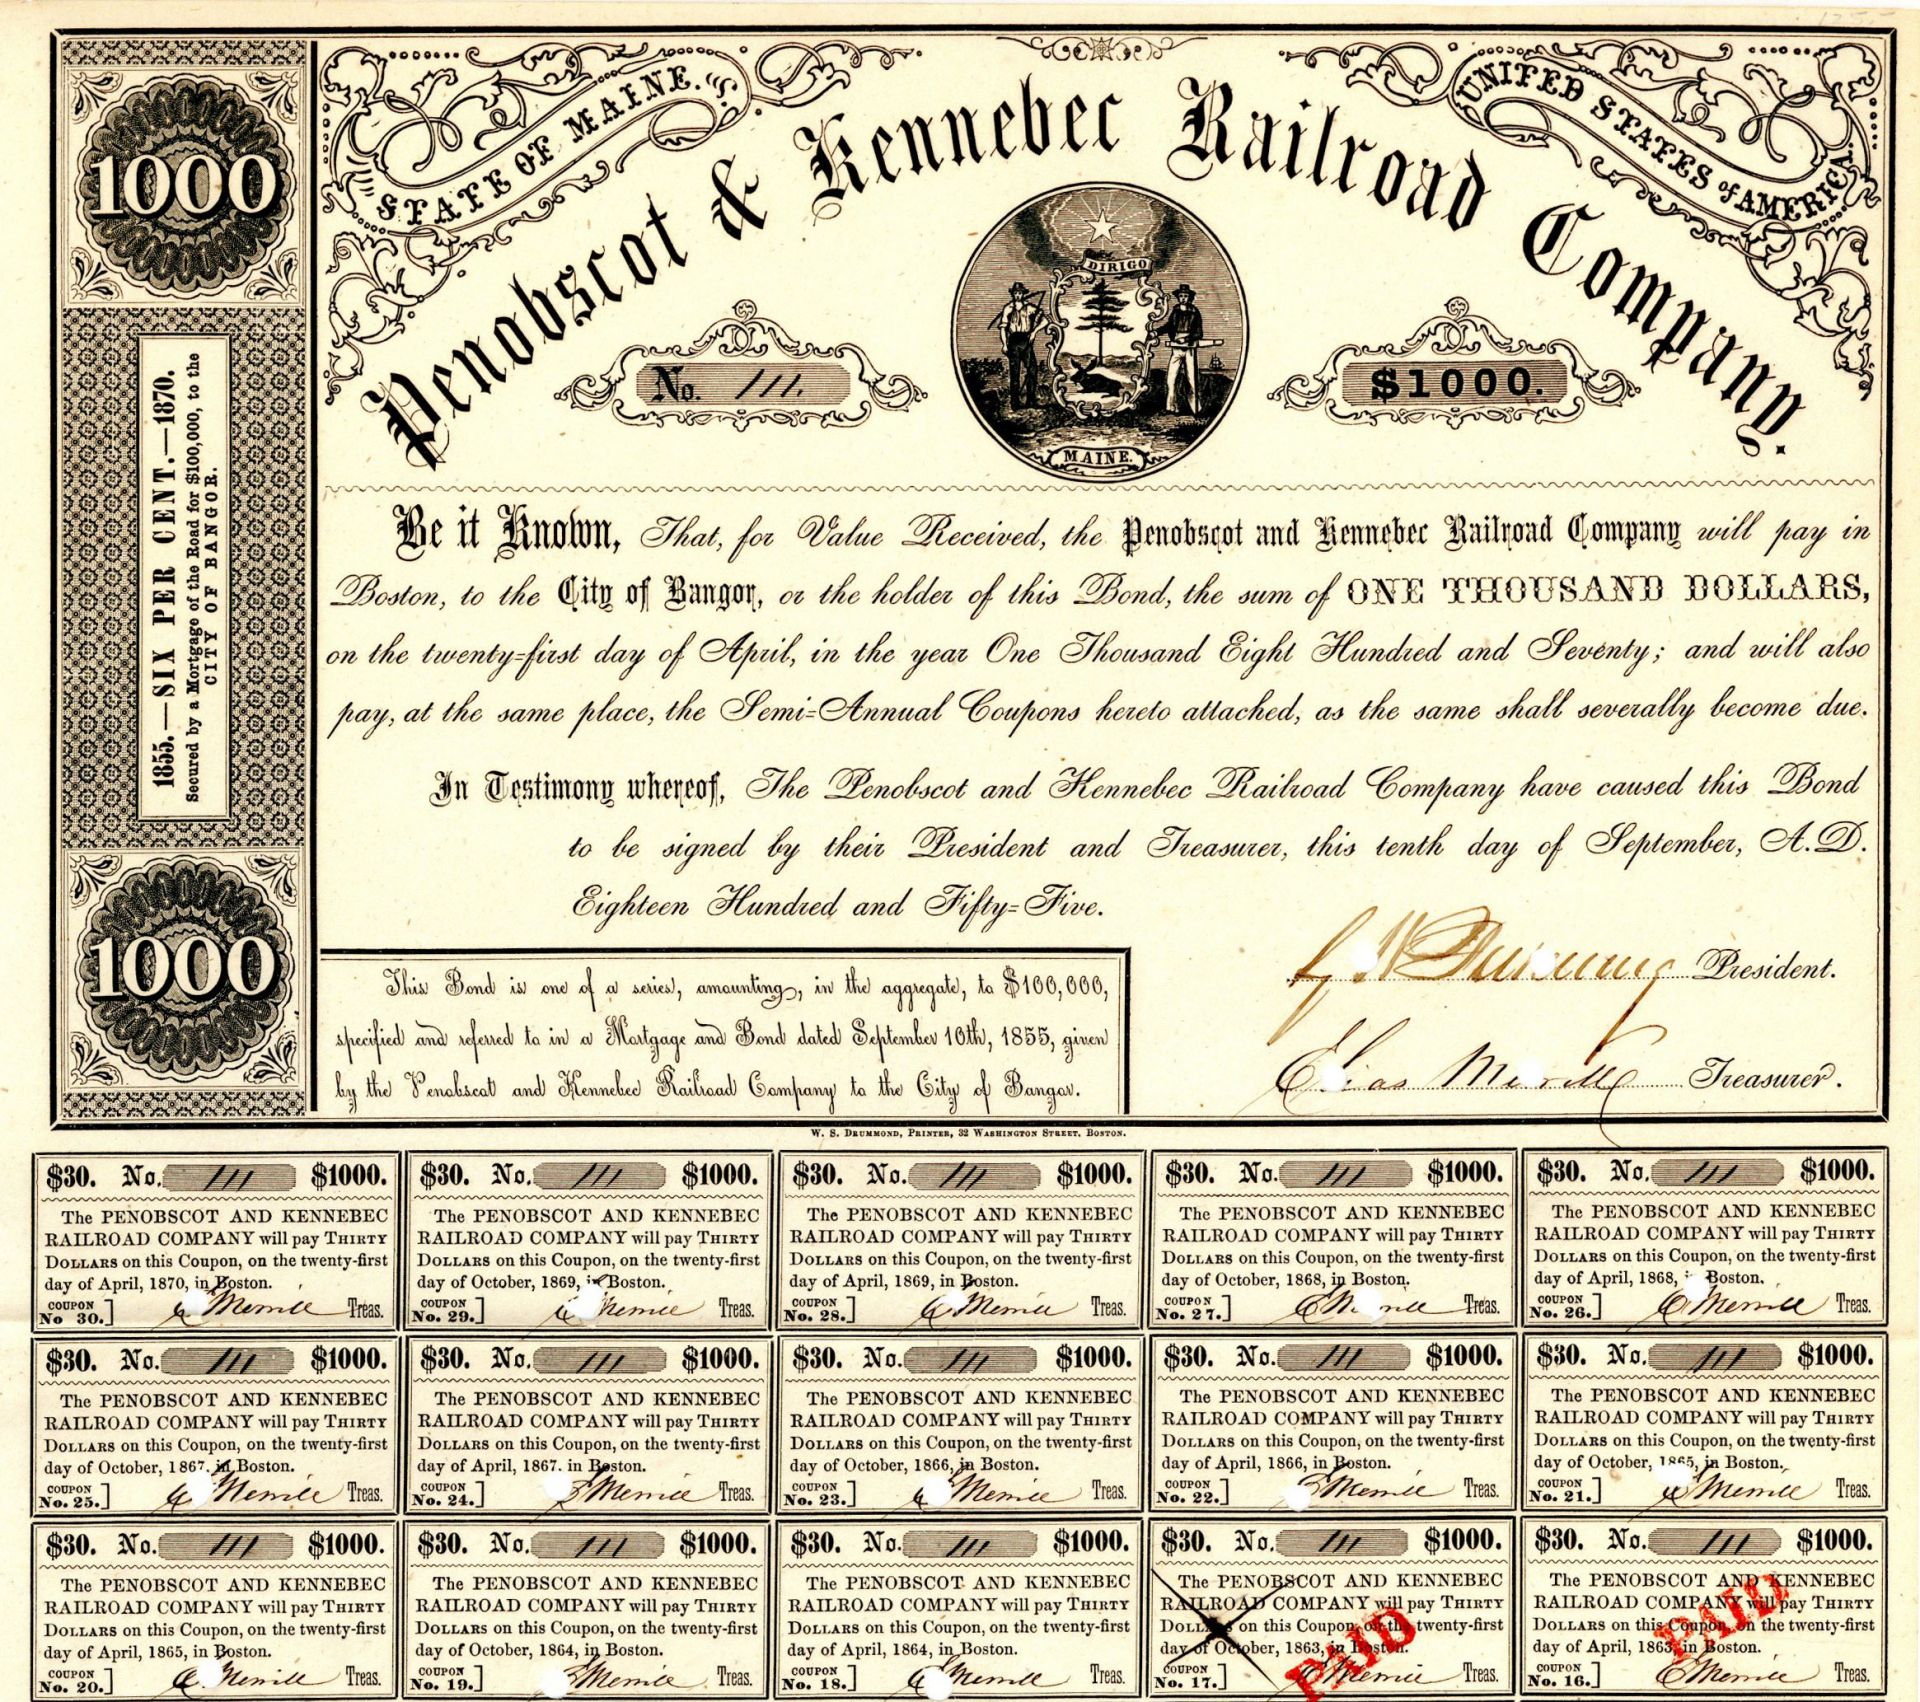 175.-
STATE OF MAINE.
UNITED STATES of AMERICA.
Penobscot & Kennebec Railroad Company.
1000
DIRIGO
MAINE.
No. 111.
$1000.
1855.—SIX PER CENT.—1870.
Secured by a Mortgage of the Road for $100,000, to the
CITY OF BANGOR.
1000
Be it Known, That, for Value Received, the Penobscot and Kennebec Railroad Company will pay in
Boston, to the City of Bangor, or the holder of this Bond, the sum of ONE THOUSAND DOLLARS,
on the twenty=first day of April, in the year One Thousand Eight Hundred and Seventy; and will also
pay, at the same place, the Semi=Annual Coupons hereto attached, as the same shall severally become due.
In Testimony whereof, The Penobscot and Kennebec Railroad Company have caused this Bond
to be signed by their President and Treasurer, this tenth day of September, A.D.
Eighteen Hundred and Fifty=Five.
G W Pickering President.
Elias Merrill Treasurer.
This Bond is one of a series, amounting, in the aggregate, to $100,000,
specified and referred to in a Mortgage and Bond dated September 10th, 1855, given
by the Penobscot and Kennebec Railroad Company to the City of Bangor.
W. S. DRUMMOND, PRINTER, 32 WASHINGTON STREET, BOSTON.
$30. No. 111 $1000.
The PENOBSCOT AND KENNEBEC
RAILROAD COMPANY will pay THIRTY
DOLLARS on this Coupon, on the twenty-first
day of April, 1870, in Boston.
COUPON
No 30.] E Merrill Treas.
$30. No. 111 $1000.
The PENOBSCOT AND KENNEBEC
RAILROAD COMPANY will pay THIRTY
DOLLARS on this Coupon, on the twenty-first
day of October, 1869, in Boston.
COUPON
No. 29.] E Merrill Treas.
$30. No. 111 $1000.
The PENOBSCOT AND KENNEBEC
RAILROAD COMPANY will pay THIRTY
DOLLARS on this Coupon, on the twenty-first
day of April, 1869, in Boston.
COUPON
No. 28.] E Merrill Treas.
$30. No. 111 $1000.
The PENOBSCOT AND KENNEBEC
RAILROAD COMPANY will pay THIRTY
DOLLARS on this Coupon, on the twenty-first
day of October, 1868, in Boston.
COUPON
No. 27.] E Merrill Treas.
$30. No. 111 $1000.
The PENOBSCOT AND KENNEBEC
RAILROAD COMPANY will pay THIRTY
DOLLARS on this Coupon, on the twenty-first
day of April, 1868, in Boston.
COUPON
No. 26.] E Merrill Treas.
$30. No. 111 $1000.
The PENOBSCOT AND KENNEBEC
RAILROAD COMPANY will pay THIRTY
DOLLARS on this Coupon, on the twenty-first
day of October, 1867. in Boston.
COUPON
No. 25.] E Merrill Treas.
$30. No. 111 $1000.
The PENOBSCOT AND KENNEBEC
RAILROAD COMPANY will pay THIRTY
DOLLARS on this Coupon, on the twenty-first
day of April, 1867. in Boston.
COUPON
No. 24.] E Merrill Treas.
$30. No. 111 $1000.
The PENOBSCOT AND KENNEBEC
RAILROAD COMPANY will pay THIRTY
DOLLARS on this Coupon, on the twenty-first
day of October, 1866, in Boston.
COUPON
No. 23.] E Merrill Treas.
$30. No. 111 $1000.
The PENOBSCOT AND KENNEBEC
RAILROAD COMPANY will pay THIRTY
DOLLARS on this Coupon, on the twenty-first
day of April, 1866, in Boston.
COUPON
No. 22.] E Merrill Treas.
$30. No. 111 $1000.
The PENOBSCOT AND KENNEBEC
RAILROAD COMPANY will pay THIRTY
DOLLARS on this Coupon, on the twenty-first
day of October, 1865, in Boston.
COUPON
No. 21.] E Merrill Treas.
$30. No. 111 $1000.
The PENOBSCOT AND KENNEBEC
RAILROAD COMPANY will pay THIRTY
DOLLARS on this Coupon, on the twenty-first
day of April, 1865, in Boston.
COUPON
No. 20.] E Merrill Treas.
$30. No. 111 $1000.
The PENOBSCOT AND KENNEBEC
RAILROAD COMPANY will pay THIRTY
DOLLARS on this Coupon, on the twenty-first
day of October, 1864, in Boston.
COUPON
No. 19.] E Merrill Treas.
$30. No. 111 $1000.
The PENOBSCOT AND KENNEBEC
RAILROAD COMPANY will pay THIRTY
DOLLARS on this Coupon, on the twenty-first
day of April, 1864, in Boston.
COUPON
No. 18.] E Merrill Treas.
$30. No. 111 $1000.
The PENOBSCOT AND KENNEBEC
RAILROAD COMPANY will pay THIRTY
DOLLARS on this Coupon, on the twenty-first
day of October, 1863, in Boston.
COUPON
No. 17.] E Merrill Treas.
PAID
$30. No. 111 $1000.
The PENOBSCOT AND KENNEBEC
RAILROAD COMPANY will pay THIRTY
DOLLARS on this Coupon, on the twenty-first
day of April, 1863, in Boston.
COUPON
No. 16.] E Merrill Treas.
PAID